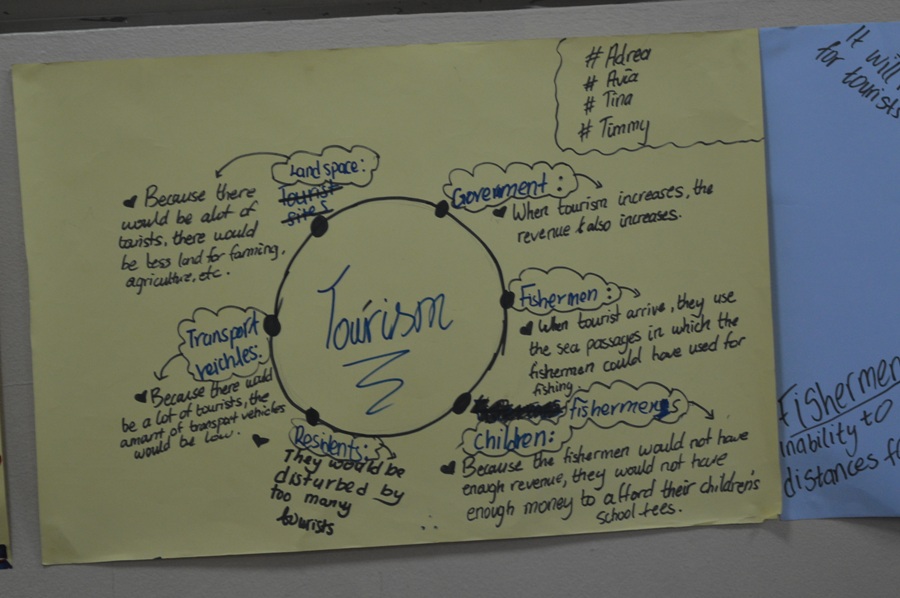 # Adrea
# Avia
# Tina
# Timmy
Land space:
Tourist
sites
Because there
would be alot of
tourists, there would
be less land for farming,
agriculture, etc.
Goverment:
When tourism increases, the
revenue also increases.
Tourism
Fishermen:
When tourist arrive, they use
the sea passages in which the
fishermen could have used for
fishing
Transport
veichles:
Because there would
be a lot of tourists, the
amount of transport vehicles
would be low.
Residents:
They would be
disturbed by
too many
tourists
fishermens
children:
Because the fishermen would not have
enough revenue, they would not have
enough money to afford their children's
school fees.
It will
for tourists
Fishermen
inability to
distances